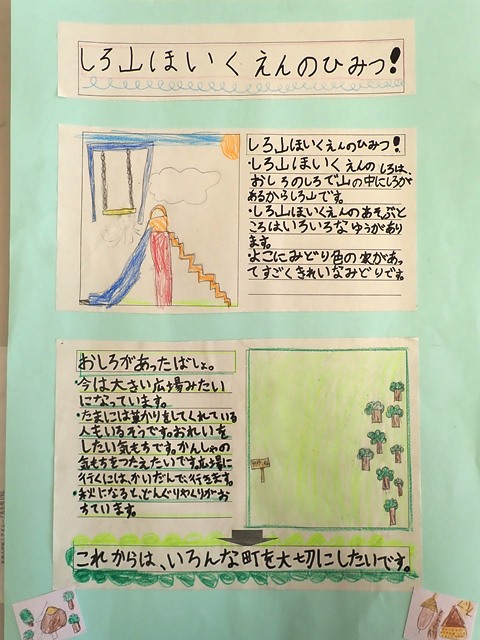 しろ山ほいくえんのひみつ!
しろ山ほいくえんのひみつ!
・しろ山ほいくえんのしろは、
おしろのしろで山の中にしろが
あるからしろ山です。
・しろ山ほいくえんのあそぶと
ころはいろいろなゆうがあり
ます。
・よこにみどり色の水があっ
てすごくきれいなみどりです。
おしろがあったばしょ。
・今は大きい広場みたい
になっています。
・たまには草かりをしてくれている
人もいるそうです。おれいを
したい気もちです。かんしゃの
気もちをつたえたいです。広場に
行くには、かいだんで、行きます。
・秋になると、どんぐりやくりがお
ちています。
これからは、いろんな町を大切にしたいです。